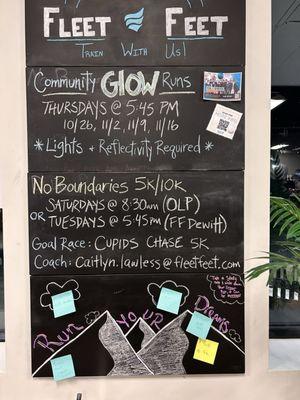 FLEET FEET
TRAIN WITH US!
COMMUNITY GLOW RUNS
THURSDAYS @ 5:45 PM
10/26, 11/2, 11/9, 11/16
*LIGHTS + REFLECTIVITY REQUIRED*
NO BOUNDARIES 5K/10K
SATURDAYS @ 8:30AM (OLP)
OR TUESDAYS @ 5:45PM (FFDEWITT)
GOAL RACE: CUPIDS CHASE 5K
COACH: CAITLYN.LAWLESS@FLEETFEET.COM
RUN YOUR DREAMS